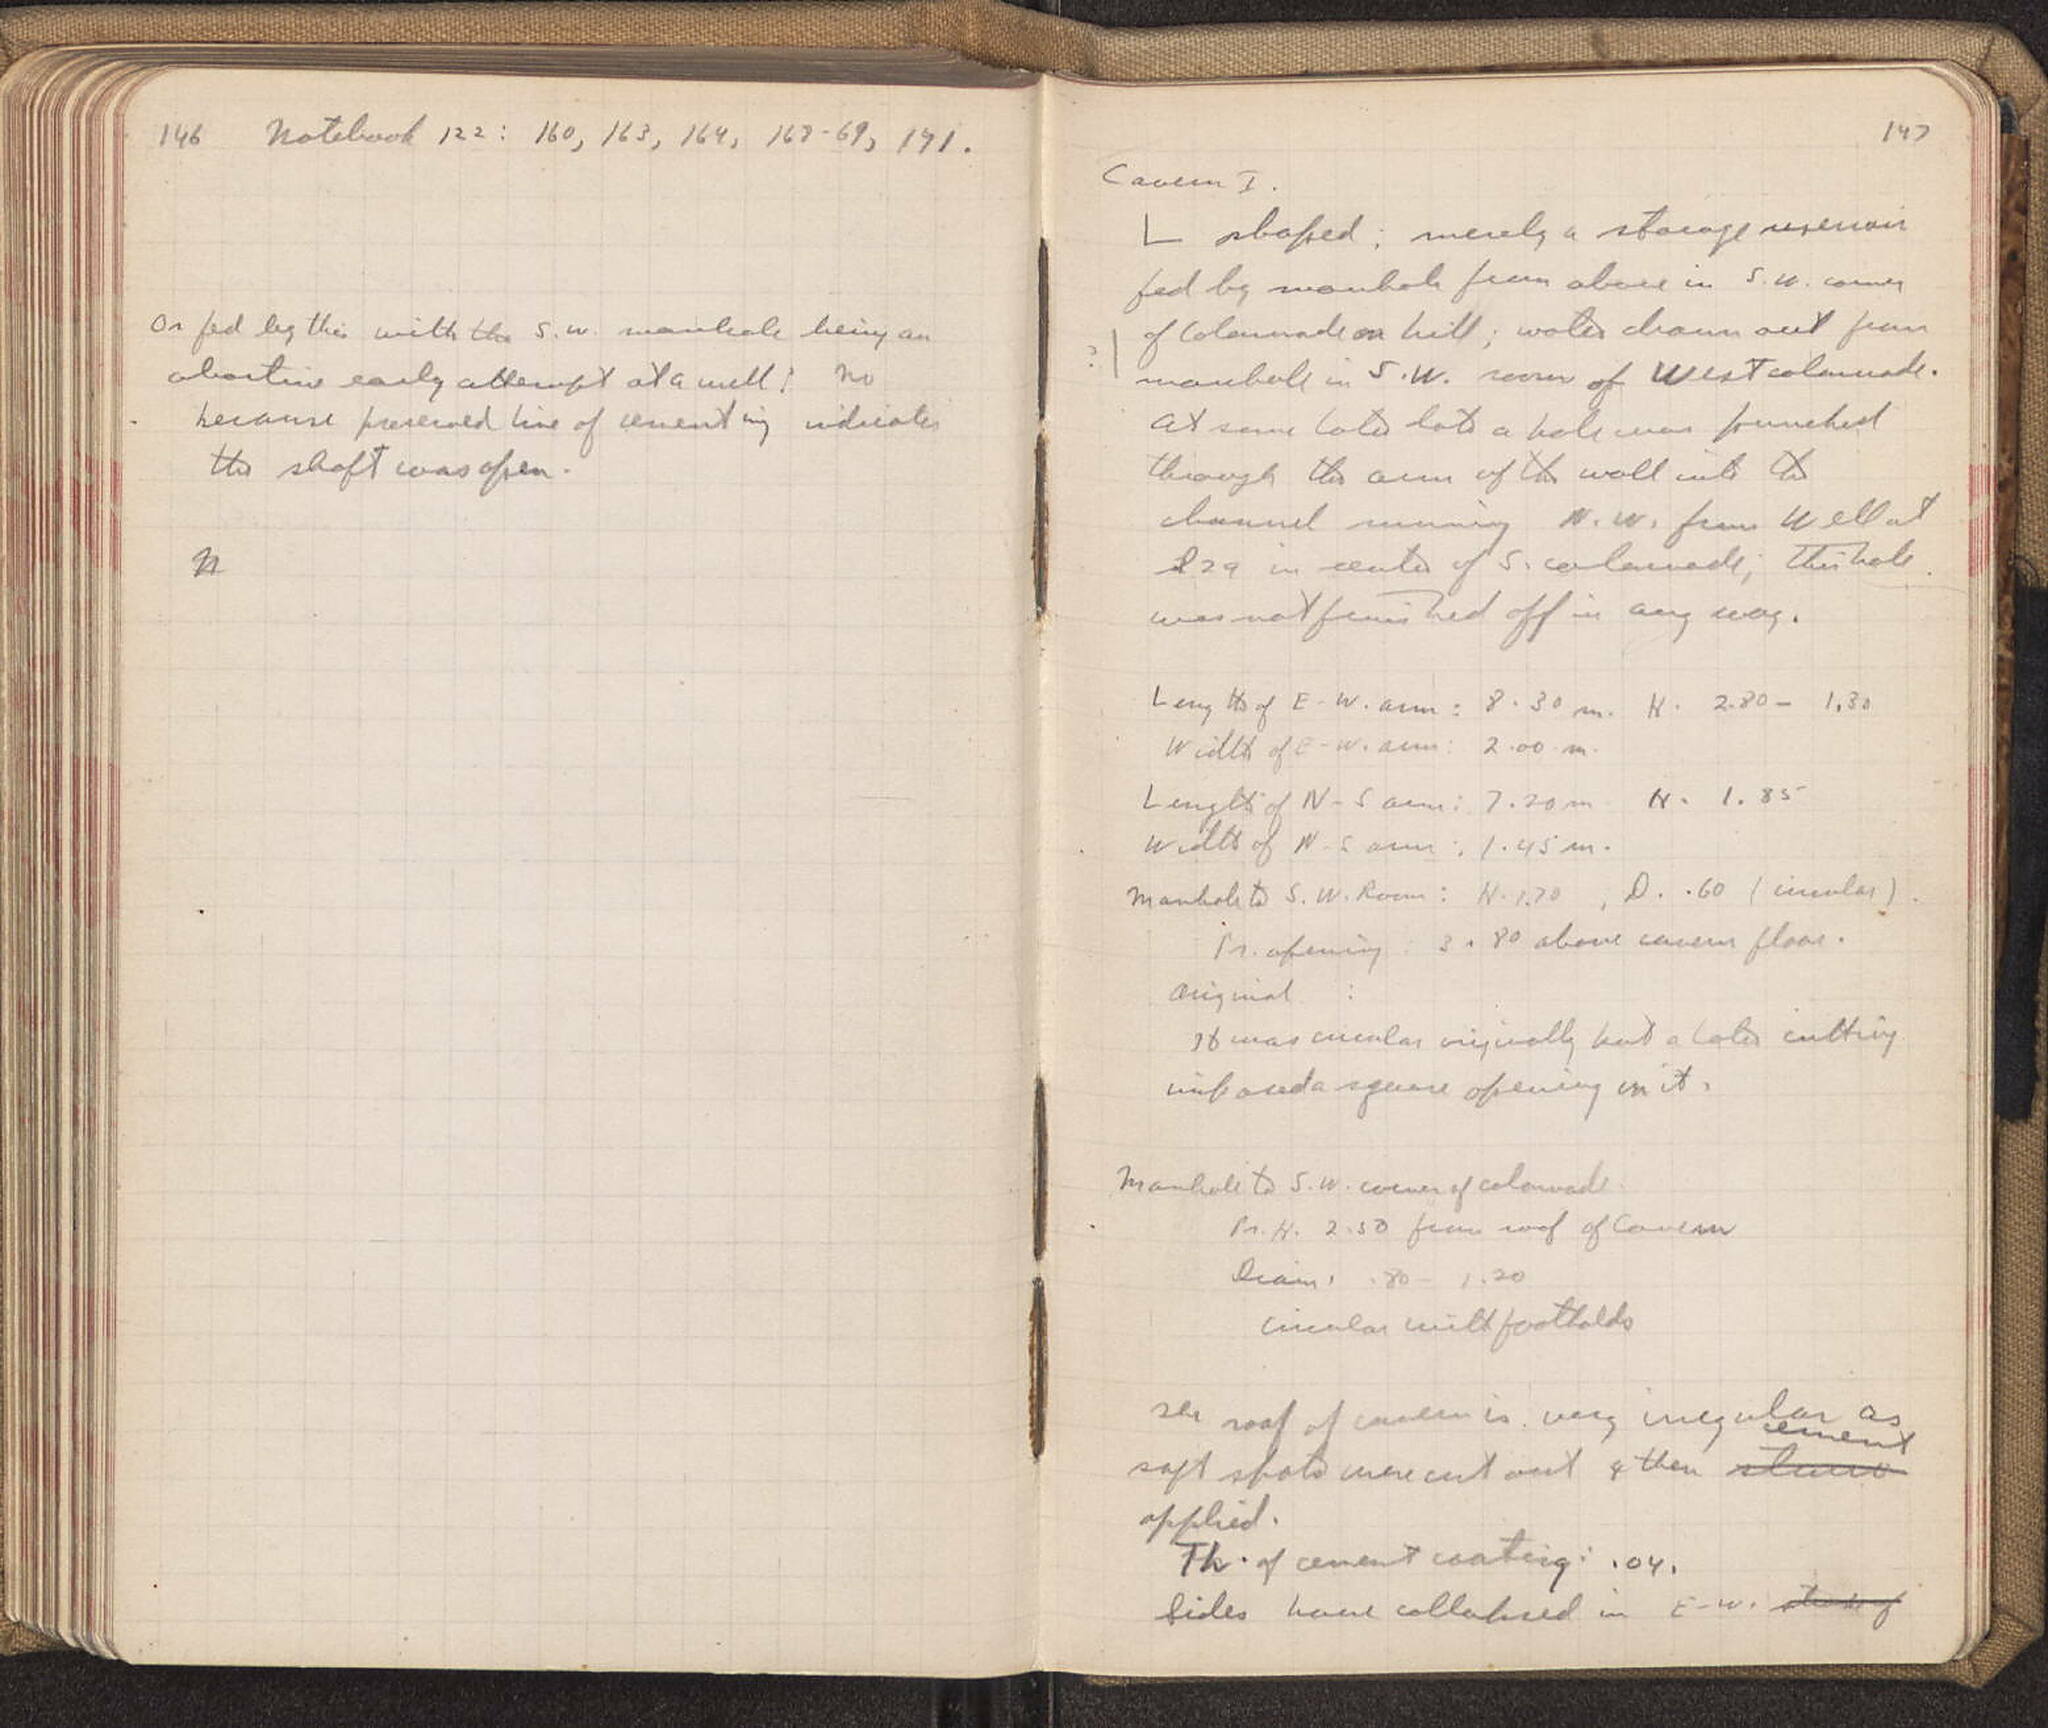 146 Notebook 122: 160, 163, 164, 168-69, 171.
Or fed by this with the S.W. manhole being an
abortive early attempt at a well? No
because preserved line of cementing indicates
the shaft was open.
N
147
Cavern I.
L shaped; merely a storage reservoir
fed by manhole from above in S.W. corner
of Colonnade on hill; water drawn out from
?| manhole in S.W. room of West colonnade.
At some later date a hole was punched
through the arm of the wall into the
channel running N.W. from Well at
in center of S. colonnade; this hole
was not finished off in any way.
Length of E-W. arm: 8.30 m. H. 2.80 - 1.30
Width of E-W. arm: 2.00 m.
Length of N-S arm: 7.20 m H. 1.85
Width of N-S arm: 1.45 m.
Manhole to S.W. Room: H. 1.70, D. .60 (circular).
Pr. opening: 3.80 above cavern floor.
Original :
It was circular originally but a later cutting
imposed a square opening in it.
Manhole to S.W. corner of colonnade
Pr. H. 2.50 from roof of Cavern
Diam. .80 - 1.20
circular with footholds
roof of cavern is very irregular as
cement
soft spots were cut out & then stucco
applied.
Th. of cement coating: .04.
Sides have collapsed in E-W.